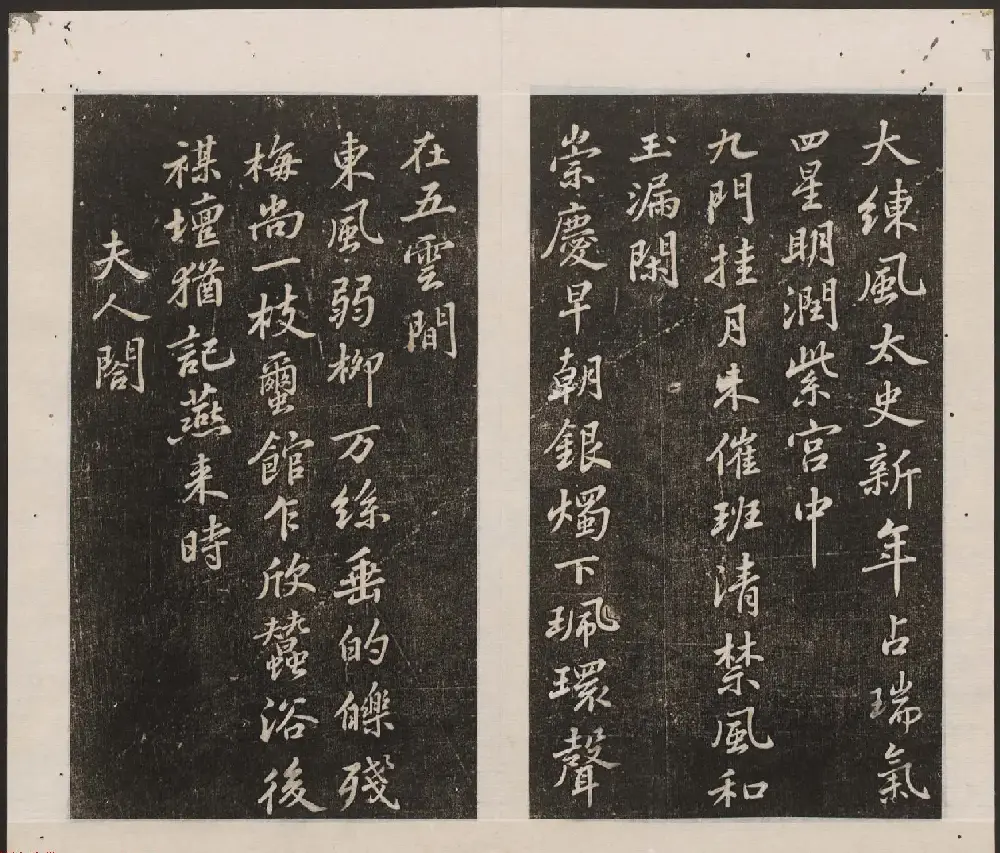 大練風太史新年占瑞氣
四星明潤紫宮中
九門挂月未催班清禁風和
玉漏閑
崇慶早朝銀燭下珮環聲
在五雲間
東風弱柳万絲垂的皪殘
梅尚一枝璽館乍欣蠶浴後
禖壇猶記燕来時
夫人閤